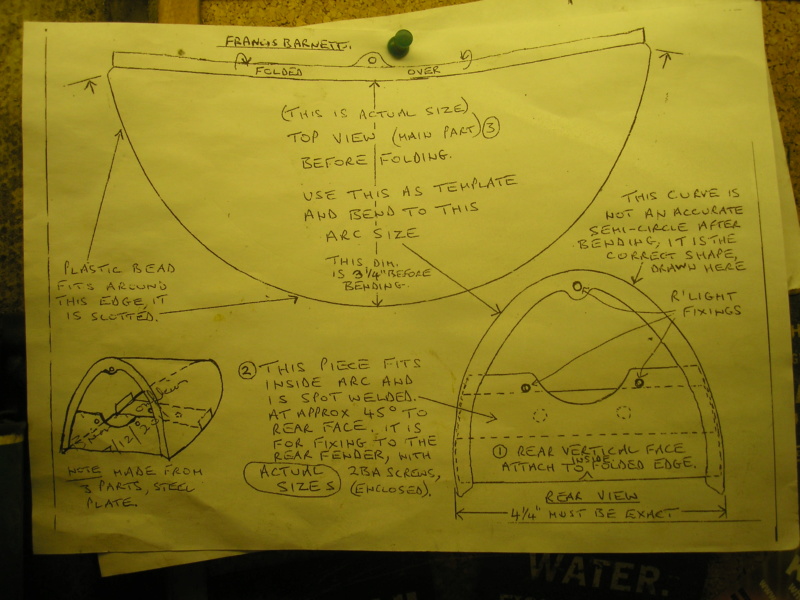 FRANCIS BARNETT.
FOLDED OVER
(THIS IS ACTUAL SIZE)
TOP VIEW (MAIN PART) 3
BEFORE FOLDING.
USE THIS AS TEMPLATE
AND BEND TO THIS
ARC SIZE
THIS DIM.
IS 3 1/4" BEFORE
BENDING.
THIS CURVE IS
NOT AN ACCURATE
SEMI-CIRCLE AFTER
BENDING, IT IS THE
CORRECT SHAPE,
DRAWN HERE
PLASTIC BEAD
FITS AROUND
THIS EDGE, IT
IS SLOTTED.
R'LIGHT
FIXINGS
2 THIS PIECE FITS
INSIDE ARC AND
IS SPOT WELDED.
AT APPROX 45° TO
REAR FACE. IT IS
FOR FIXING TO THE
REAR FENDER, WITH
2BA SCREWS,
(ENCLOSED).
ACTUAL
SIZES
NOTE MADE FROM
3 PARTS, STEEL
PLATE.
1 REAR VERTICAL FACE
ATTACH TO INSIDE FOLDED EDGE.
REAR VIEW
4 1/4" MUST BE EXACT
WATER.